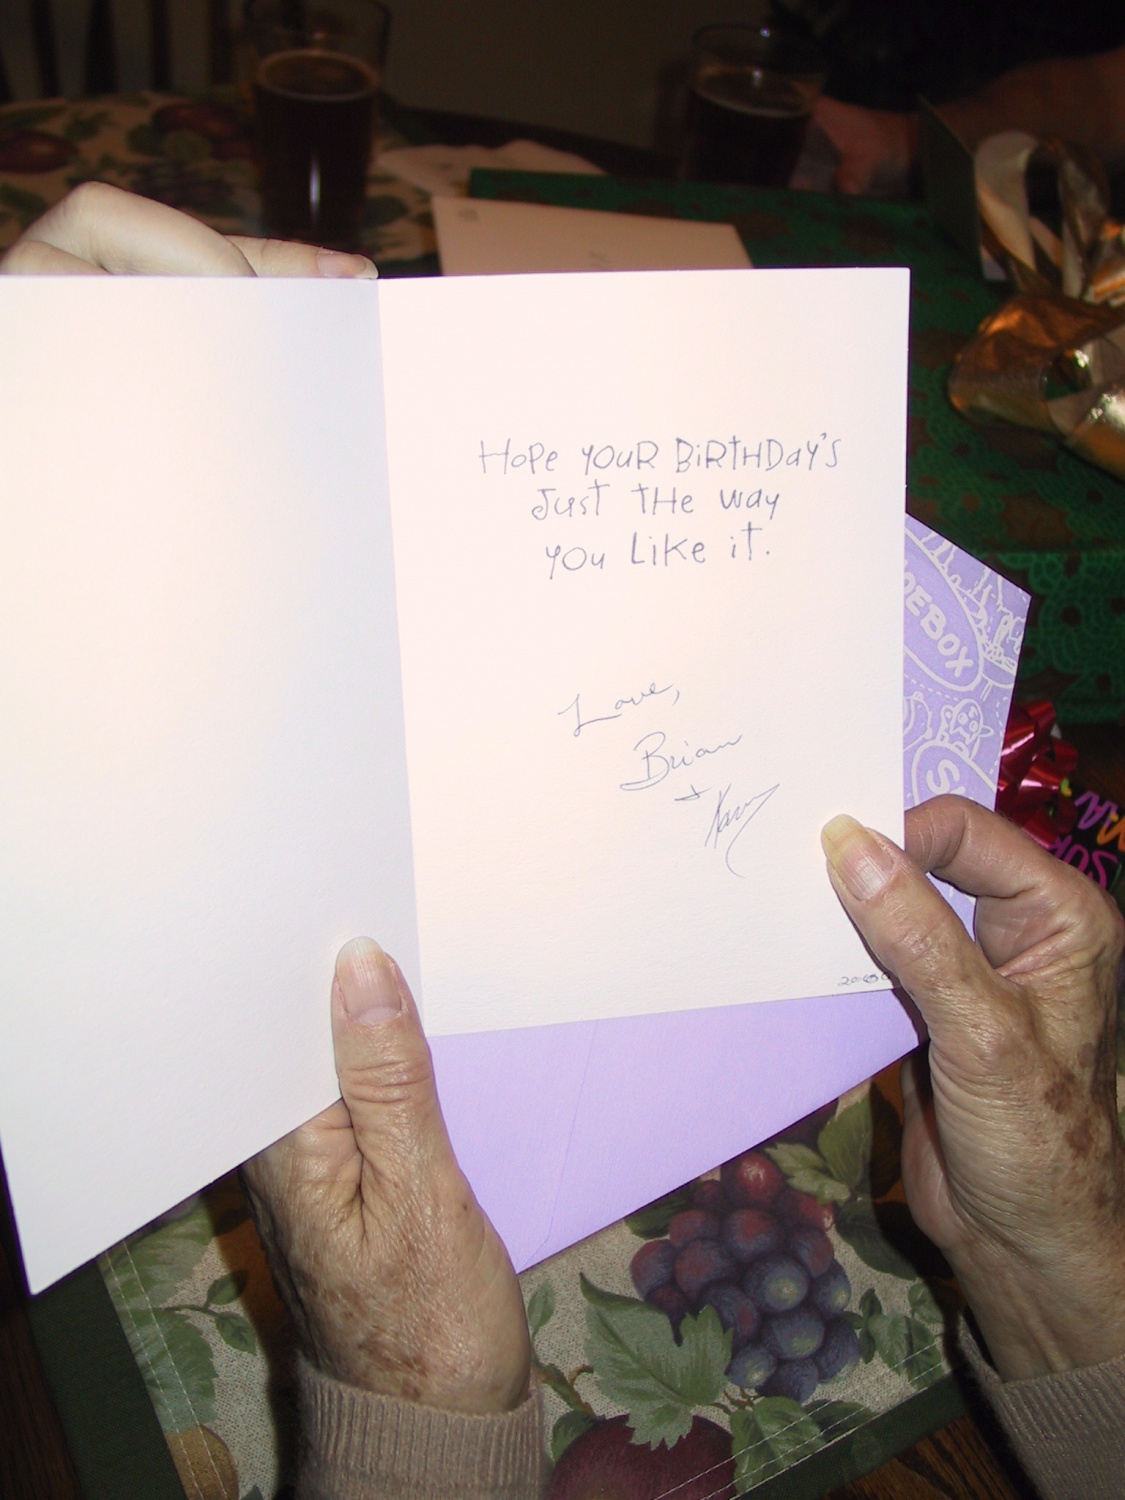 Hope your Birthday's
Just the way
you Like it.
Love,
Brian
+
OEBOX